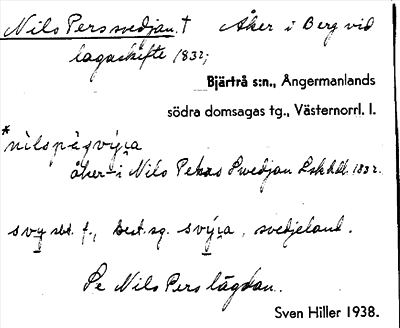 Nils Perssvedjan. † Åker i Berg vid
lagaskifte 1832;
Bjärtrå s:n., Ångermanlands
södra domsagas tg., Västernorrl. l.
*nìlspàgvýɩa
åker i Nils Pehrs Swedjan Lskhdl. 1832.
svy sbt. f., best. sg. svýɩa, svedjeland.
Se Nils Perslägdan.
Sven Hiller 1938.